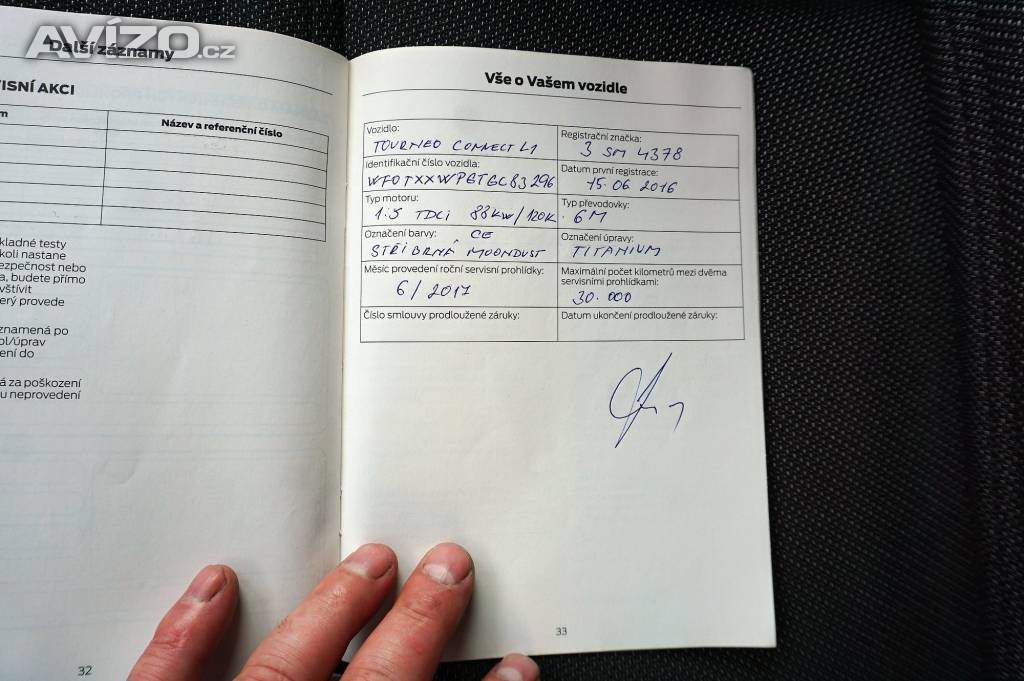 AVÍZO.cz
Další záznamy
ISNÍ AKCI
m
Název a referenční číslo
kladné testy
koli nastane
ezpečnost nebo
a, budete přímo
vštívit
erý provede
znamená po
ol/úprav
ení do
á za poškození
u neprovedení
32
Vše o Vašem vozidle
Vozidlo:
TOURNEO CONNECT L1
Registrační značka:
3 SM 4378
Identifikační číslo vozidla:
WF0TXXWPGTGC83296
Datum první registrace:
15.06 2016
Typ motoru:
1.5 TDCi 88kW/120K
Typ převodovky:
6M
Označení barvy: CE
STŘÍBRNÁ MOONDUST
Označení úpravy:
TITANIUM
Měsíc provedení roční servisní prohlídky:
6/2017
Maximální počet kilometrů mezi dvěma
servisními prohlídkami:
30.000
Číslo smlouvy prodloužené záruky:
Datum ukončení prodloužené záruky:
33